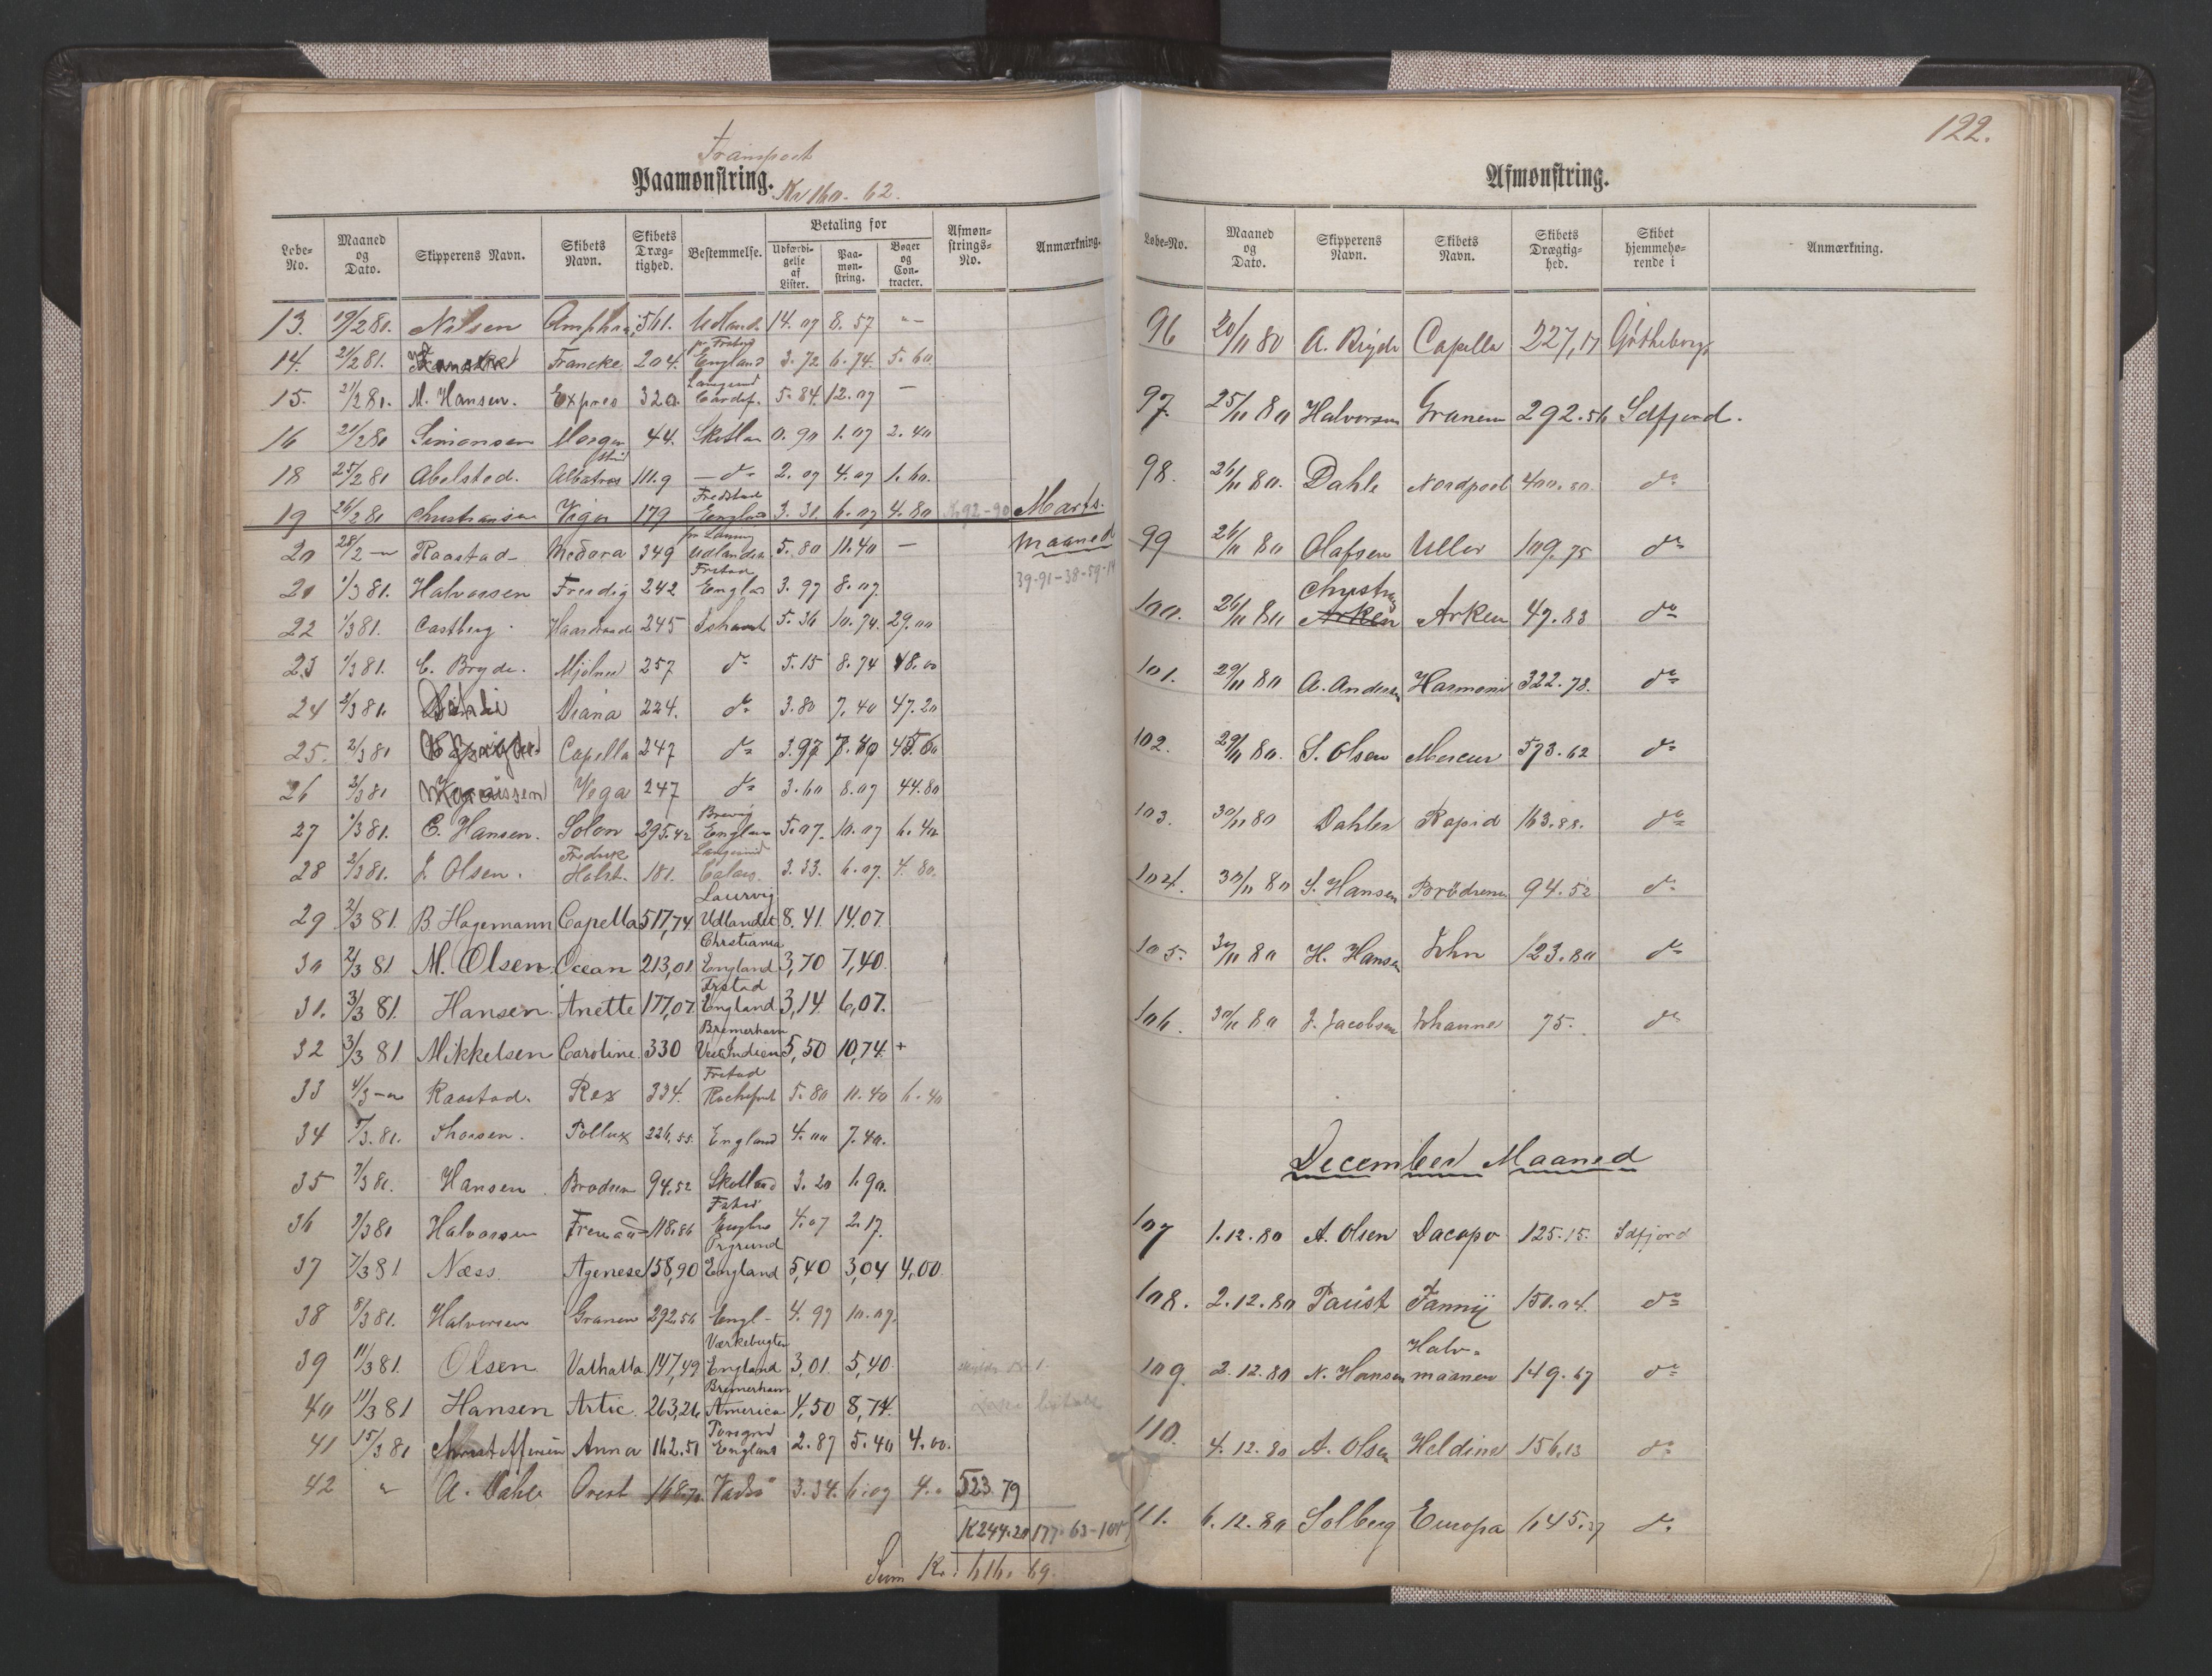 Transport
Paamønstring. Kr 160. 62.
Løbe-No. | Maaned og Dato. | Skipperens Navn. | Skibets Navn. | Skibets Dræg-tighed. | Bestemmelse. | Betaling for | Udfærdi-gelse af Lister. | Paa-møn-string. | Bøger og Con-tracter. | Afmøn-strings-No. | Anmærkning.
13. 19/2 81. Nilsen 561. Udland. 14. 07 8. 57 "–
pr Frstad
14. 21/2 81. Francke 204. England 3. 72 6. 74. 5. 60
Langsund
15. 21/2 81. M. Hansen. Expres 320. Cardif. 5. 84. 12. 07 –
16 21/2 81 Simonsen Morgen 44. Skotlan 0. 90 1. 07 2. 40
18 25/2 81 Abelsted. Albatros 111.9 – do 2. 07 4. 07 1. 60.
Fredstad
19 26/2 81 Christiansen Viga 179 England 3. 31. 6. 07 4. 80 K 92-90 Marts.
20 28/2 –" Raastad Medora 349 Udlandet 5. 80 11. 40 – Maaned
Frstad
20 1/3 81. Halvorsen Freidig 242 Englan 3. 97 8. 07 39-91-38-59-14
22 1/3 81. Castberg. 245 5. 36 10. 74. 29. 00
23 1/3 81. C. Bryde. Mjølner 257 do 5. 15 8. 74 48. 00
24 2/3 81. Diana 224. do 3. 80 7. 40 47. 20
25. 2/3 81 Capella 247 do 3.97 7. 40 45. 60
26 2/3 81 Vega 247 do 3. 60 8. 07 44. 80
Brevig
27 1/3 81. C. Hansen. Solon 295.42 Englan 5. 07. 10. 07 6. 40
Fredrik Langesund
28 2/3 81. J. Olsen. Holst. 181. Calais. 3. 33. 6. 07. 4. 80.
Laurvig
29 2/3 81. B. Hagemann Capella 517,74 Udlandet 8. 41. 14.07.
Christiania
30 2/3 81 M. Olsen. Ocean 213,01 England 3,70 7,40.
Frstad
31. 3/3 81. Hansen. Anette 177,07. England 3,14 6,07.
Bremerham
32 3/3 81 Mikkelsen Caroline. 330 VestIndien 5,50 10,74. +
Frstad
33 4/3 –" Raastad. Rex 334. Rochefort 5. 80 11. 40 6. 40
34 5/3. 81. Thorsen. Pollux 226,55. England 4. 00 7. 40.
35 7/3 81. Hansen. Brødren 94.52 Skotland 3. 20 1. 90.
36 7/3 81 Halvorsen 118.86 4. 07 2. 17.
Prgrund
37 7/3 81 Næss. Agenese 158,90 England 5,40 3,04 4,00.
38 8/3 81. Halvorsen Granen 292.56 Engl- 4. 97 10. 07.
Værkebugten
39 11/3 81. Olsen Valhalla 147,49 England 3,01. 5,40.
Bremerham
40 11/3 81 Hansen Artic. 263,26 America 4,50 8,74.
Porsgrd
41 15/3 81 Christoffersen Anna 162.51 England 2. 87 5. 40 4. 00.
42 " A. Dahl Orest 168.70 Vadsø 3. 34. 6. 07 4. " 523 79
K 244. 20 177. 63-104
Sum Kr. 616. 69.
122.
Afmønstring.
Løbe-No. | Maaned og Dato. | Skipperens Navn. | Skibets Navn. | Skibets Drægtig-hed. | Skibet hjemmehø-rende i | Anmærkning.
96 20/11 80 A. Bryde Capella 227,17 Gøtheborg
97. 25/11 80 Halvorsen Granen 292.56 Idfjord.
98. 26/11 80. Dahl Nordpool 400. 80. do
99 26/11 80 Olafsen Uller 109. 75 do
Christens
100. 26/11 80 Arken Arken 47. 83 do
101. 29/11 80 A. Andersen Harmonie 322. 78. do
102. 29/11 80. S. Olsen Mercur 573. 62 do
103. 30/11 80 Dahler Rapid 163. 88. do
104. 30/11 80 S. Hansen Brødrene 94. 52 do
105. 30/11 80 H. Hansen John 123. 80 do
106. 30/11 80 J. Jacobsen Johanne 75. do
December Maaned
107 1. 12. 80 A. Olsen Dacapo 125. 15. Idfjord
108. 2. 12. 80 Paust Fanny 150. 04. do
Halv-
109. 2. 12. 80 N. Hansen maanen 149. 67 do
110. 4. 12. 80 A. Olsen Heldine 156.13 do
111. 6. 12. 80 Solberg Europa 645. 27 do